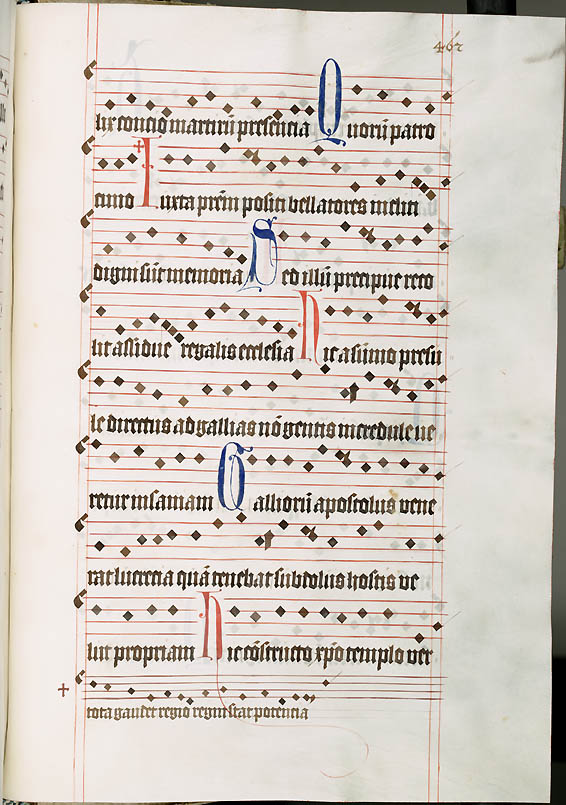 462
lix concio martirū presencia Quorū patro
cinio Iuxta prēm positi bellatores incliti
digni sūt memoria Sed illū precipue reco
lit assidue regalis ecclesia Hic a sūmo presu
le directus ad gallias nō gentis incredule ve
retur insaniam Galliorū apostolus vene
rat lucrecia quā tenebat subdolus hostis ve
lut propriam Hic cōstructo xp̄o templo ver
tota gaudet regio regni stat potencia